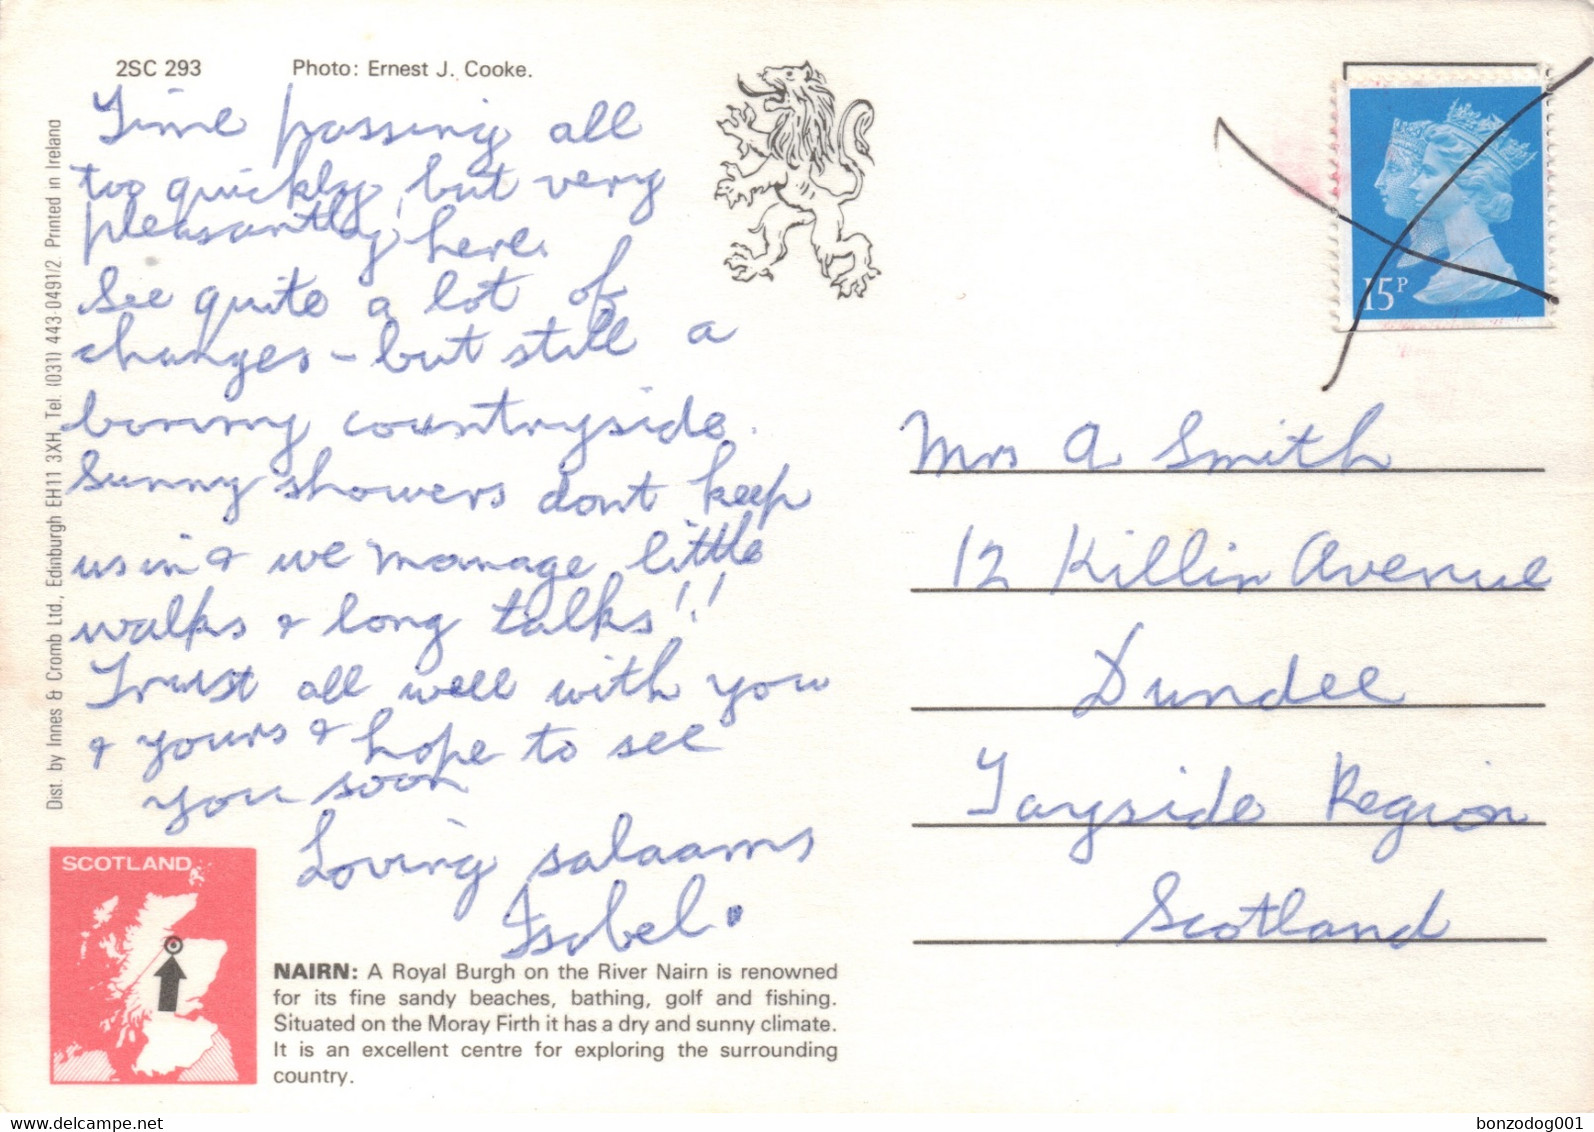 2SC 293 Photo: Ernest J. Cooke.
Time passing all
too quickly, but very
pleasantly, here.
See quite a lot of
changes - but still a
bonny countryside.
Sunny showers dont keep
us in & we manage little
walks & long talks!!
Trust all well with you
& yours & hope to see
you soon
Loving salaams
Isobel.
Dist. by Innes & Cromb Ltd., Edinburgh EH11 3XH, Tel. (031) 443-0491/2. Printed in Ireland
SCOTLAND
NAIRN: A Royal Burgh on the River Nairn is renowned
for its fine sandy beaches, bathing, golf and fishing.
Situated on the Moray Firth it has a dry and sunny climate.
It is an excellent centre for exploring the surrounding
country.
15P
Mrs A Smith
12 Killin Avenue
Dundee
Tayside Region
Scotland
delcampe.net
bonzodog001